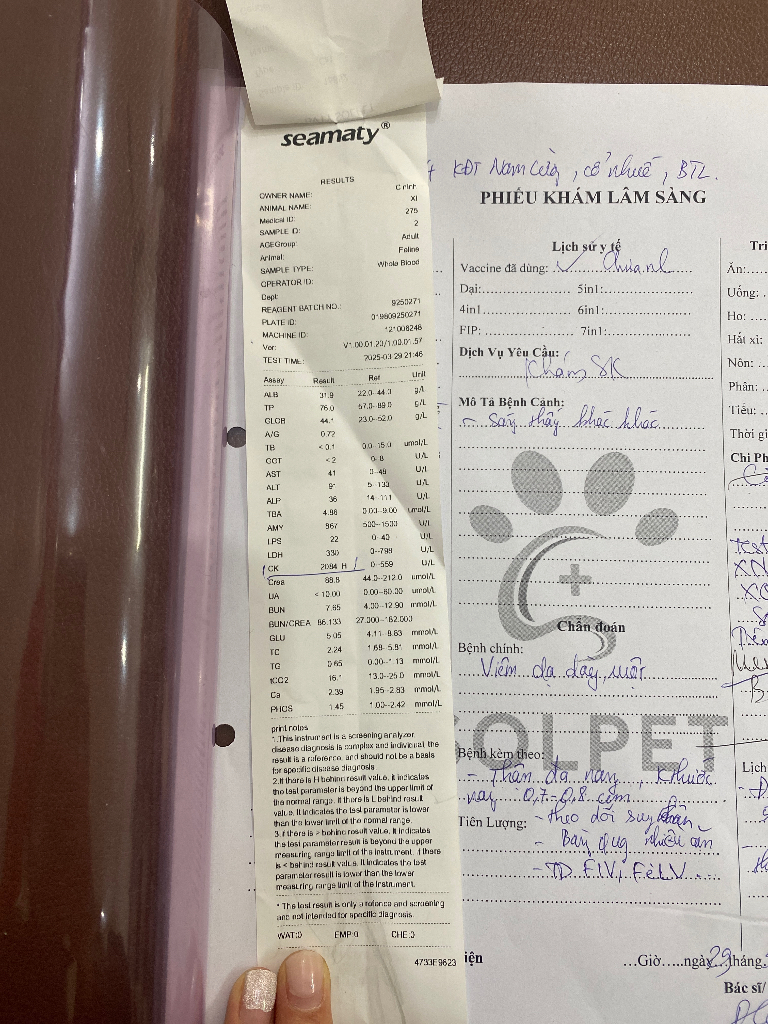 seamaty®
RESULTS
OWNER NAME: C ninh
ANIMAL NAME: XI
Medical ID: 275
SAMPLE ID: 2
AGEGroup: Adult
Animal: Feline
SAMPLE TYPE: Whole Blood
OPERATOR ID:
Dept:
REAGENT BATCH NO.: 9250271
PLATE ID: 019809250271
MACHINE ID: 121008248
Ver: V1.00.01.20/1.00.01.57
TEST TIME: 2025-03-29 21:46
Assay Result Ref Unit
ALB 31.9 22.0--44.0 g/L
TP 76.0 57.0--89.0 g/L
GLOB 44.1 23.0--52.0 g/L
A/G 0.72
TB <0.1 0.0--15.0 umol/L
GGT <2 0--8 U/L
AST 41 0--48 U/L
ALT 5--133 U/L
ALP 36 14--111 U/L
TBA 4.98 0.00--9.00 umol/L
AMY 967 500--1500 U/L
LPS 22 0--40 U/L
LDH 330 0--798 U/L
CK 2084 H 0--559 U/L
Crea 88.8 44.0--212.0 umol/L
UA <10.00 0.00--60.00 umol/L
BUN 7.65 4.00--12.90 mmol/L
BUN/CREA 86.133 27.000--182.000
GLU 5.05 4.11--8.83 mmol/L
TC 2.24 1.68--5.81 mmol/L
TG 0.65 0.00--1.13 mmol/L
tCO2 16.1 13.0--25.0 mmol/L
Ca 2.39 1.95--2.83 mmol/L
PHOS 1.45 1.00--2.42 mmol/L
print notes
1.This instrument is a screening analyzer,
disease diagnosis is complex and individual, the
result is a reference, and should not be a basis
for specific disease diagnosis
2.If there is H behind result value, it indicates
the test parameter is beyond the upper limit of
the normal range. If there is L behind result
value, it indicates the test parameter is lower
than the lower limit of the normal range.
3.If there is > behind result value, it indicates
the test parameter result is beyond the upper
measuring range limit of the instrument. If there
is < behind result value. It indicates the test
parameter result is lower than the lower
measuring range limit of the instrument.
* The test result is only a refence and screening
and not intended for specific diagnosis
WAT:0 EMP:0 CHE:0
4733E9623
KĐT Nam Cường, cổ nhuế, BTL.
PHIẾU KHÁM LÂM SÀNG
Lịch sử y tế
Vaccine đã dùng:
Dại: 5in1:
4in1 6in1:
FIP: 7in1:
Dịch Vụ Yêu Cầu:
Khám SK
Mô Tả Bệnh Cảnh:
- thấy khác khác
Chẩn đoán
Bệnh chính:
Viêm dạ dày, ruột
OLPET
Bệnh kèm theo:
- Thận đa nang, kthước
0,7-0,8 cm
Tiên Lượng: - theo dõi suy thận
- TD FIV, FeLV
Ăn:
Uống:
Ho:
Hắt xì:
Nôn:
Phân:
Tiểu:
Thời gi
Chi Ph
XN
Lịch
iện
Giờ.....ngày 29 tháng
Bác sĩ/